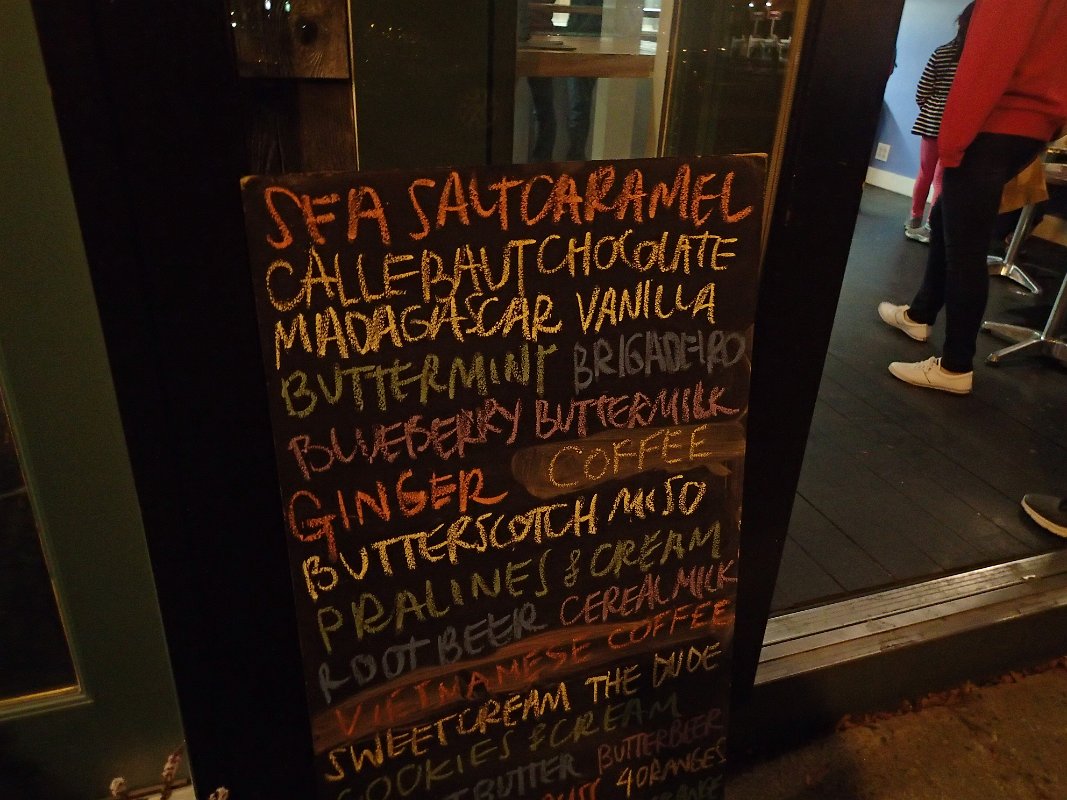 SEA SALT CARAMEL
CALLEBAUT CHOCOLATE
MADAGASCAR VANILLA
BUTTERMINT BRIGADEIRO
BLUEBERRY BUTTERMILK
GINGER COFFEE
BUTTERSCOTCH MISO
PRALINES & CREAM
ROOT BEER CEREAL MILK
VIETNAMESE COFFEE
SWEET CREAM THE DUDE
COOKIES & CREAM
BUTTER BUTTERBEER
4 ORANGES